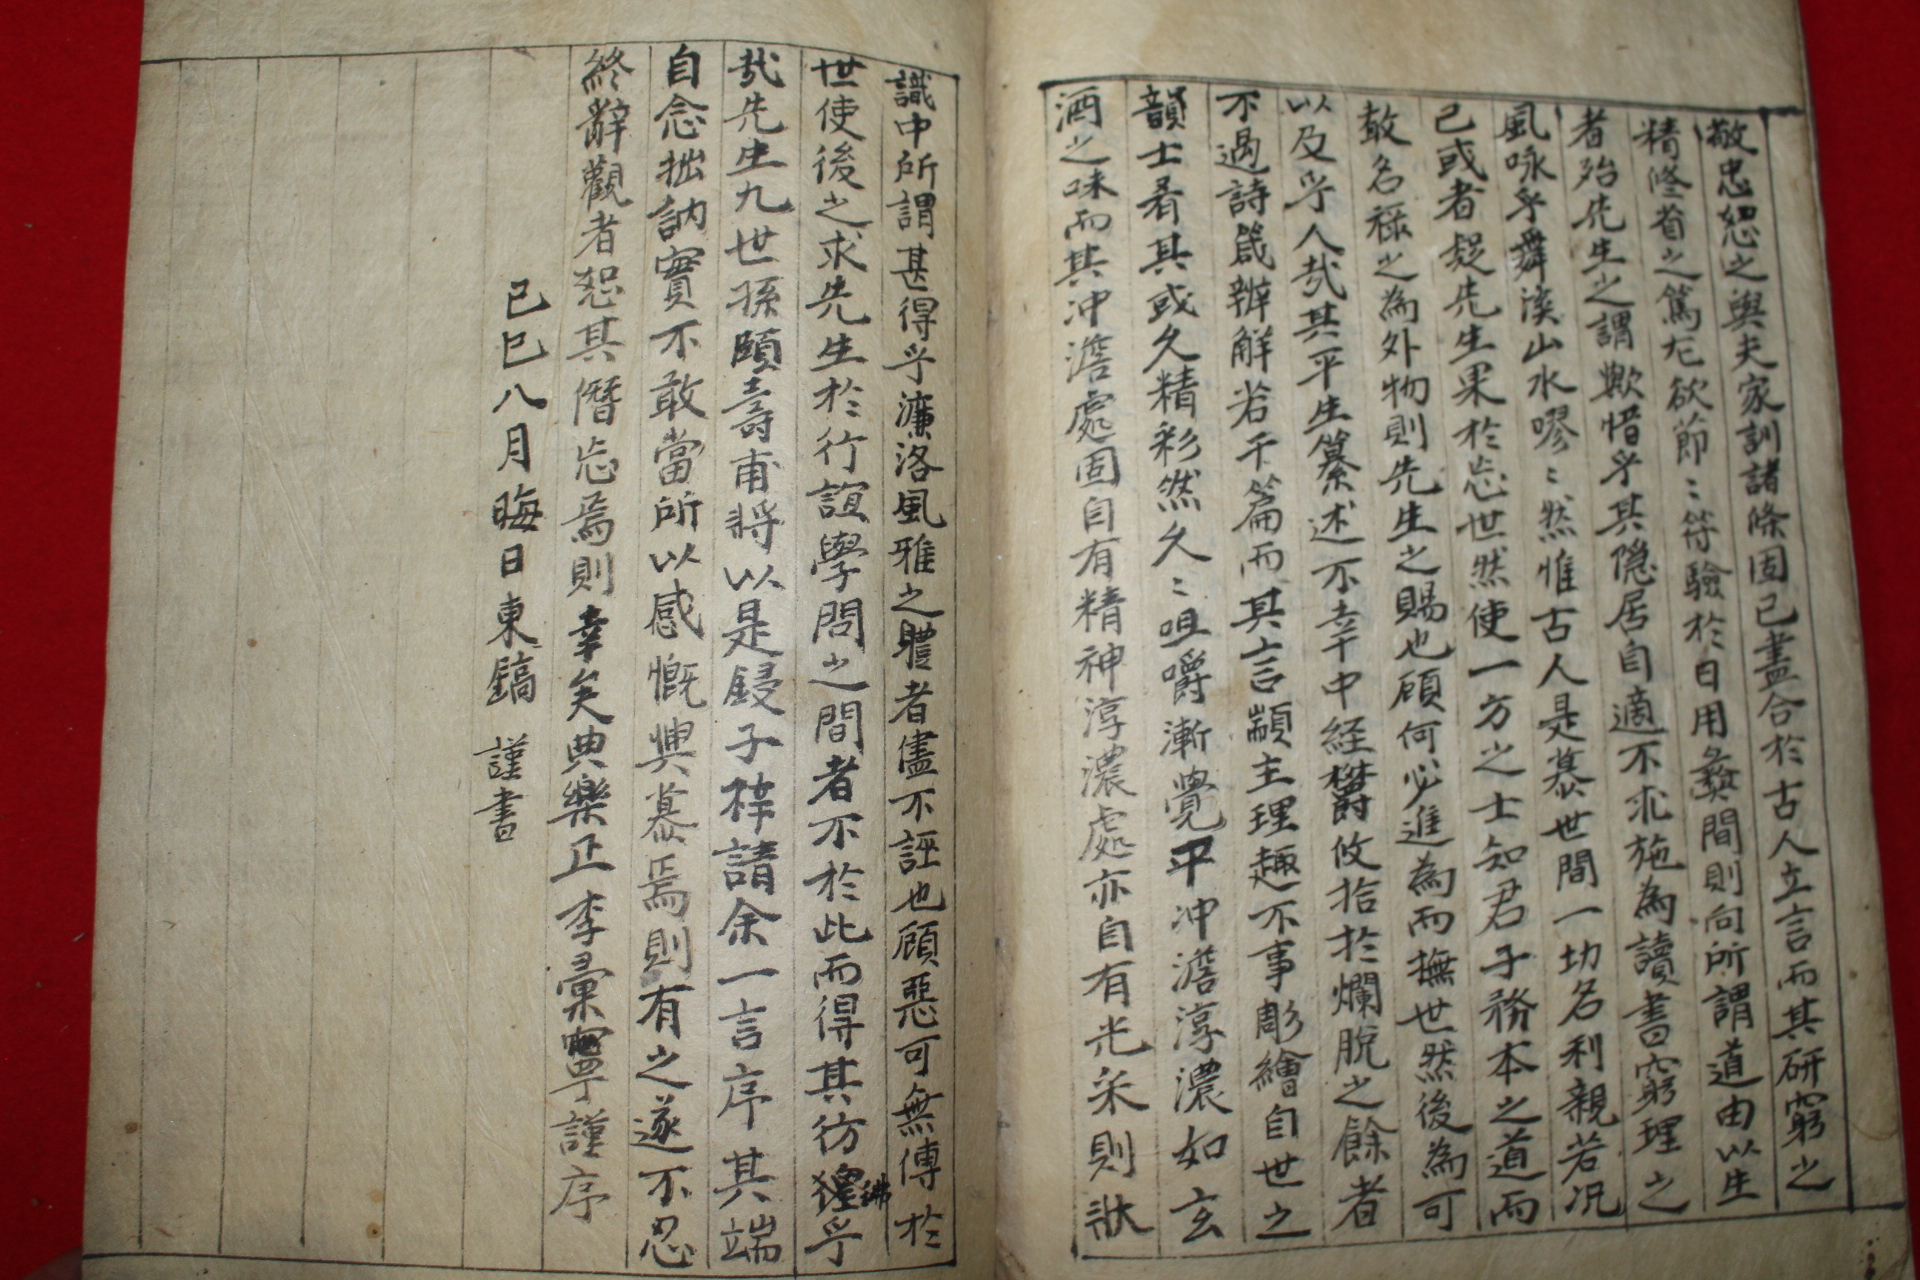 敬忠恕之與夫家訓諸條固已盡合於古人立言而其研窮之
精修省之篤尤欲節〻符驗於日用彝間則向所謂道由以生
者殆先生之謂歟惜乎其隱居自適不求施為讀書窮理之
風咏乎舞溪山水嘐〻然惟古人是慕世間一切名利親若況
己或者疑先生果於忘世然使一方之士知君子務本之道而
敢名祿之為外物則先生之賜也顧何必進為而撫世然後為可
以及乎人哉其平生纂述不幸中經欝攸拾於爛脫之餘者
不過詩箴辨解若干篇而其言顓主理趣不事彫繪自世之
韻士看其或久精彩然久〻咀嚼漸覺平冲澹淳濃如玄
酒之味而其冲澹處固自有精神淳濃處亦自有光采則狀
識中所謂甚得乎濂洛風雅之體者儘不誣也顧惡可無傳於
世使後之求先生於行誼學問之間者不於此而得其彷彿乎
哉先生九世孫頤壽甫將以是鋟子梓請余一言序其端
自念拙訥實不敢當所以感慨興慕焉則有之遂不忍
終辭觀者恕其僭忘焉則幸矣典樂正李彙寧謹序
己巳八月晦日東鎬 謹書